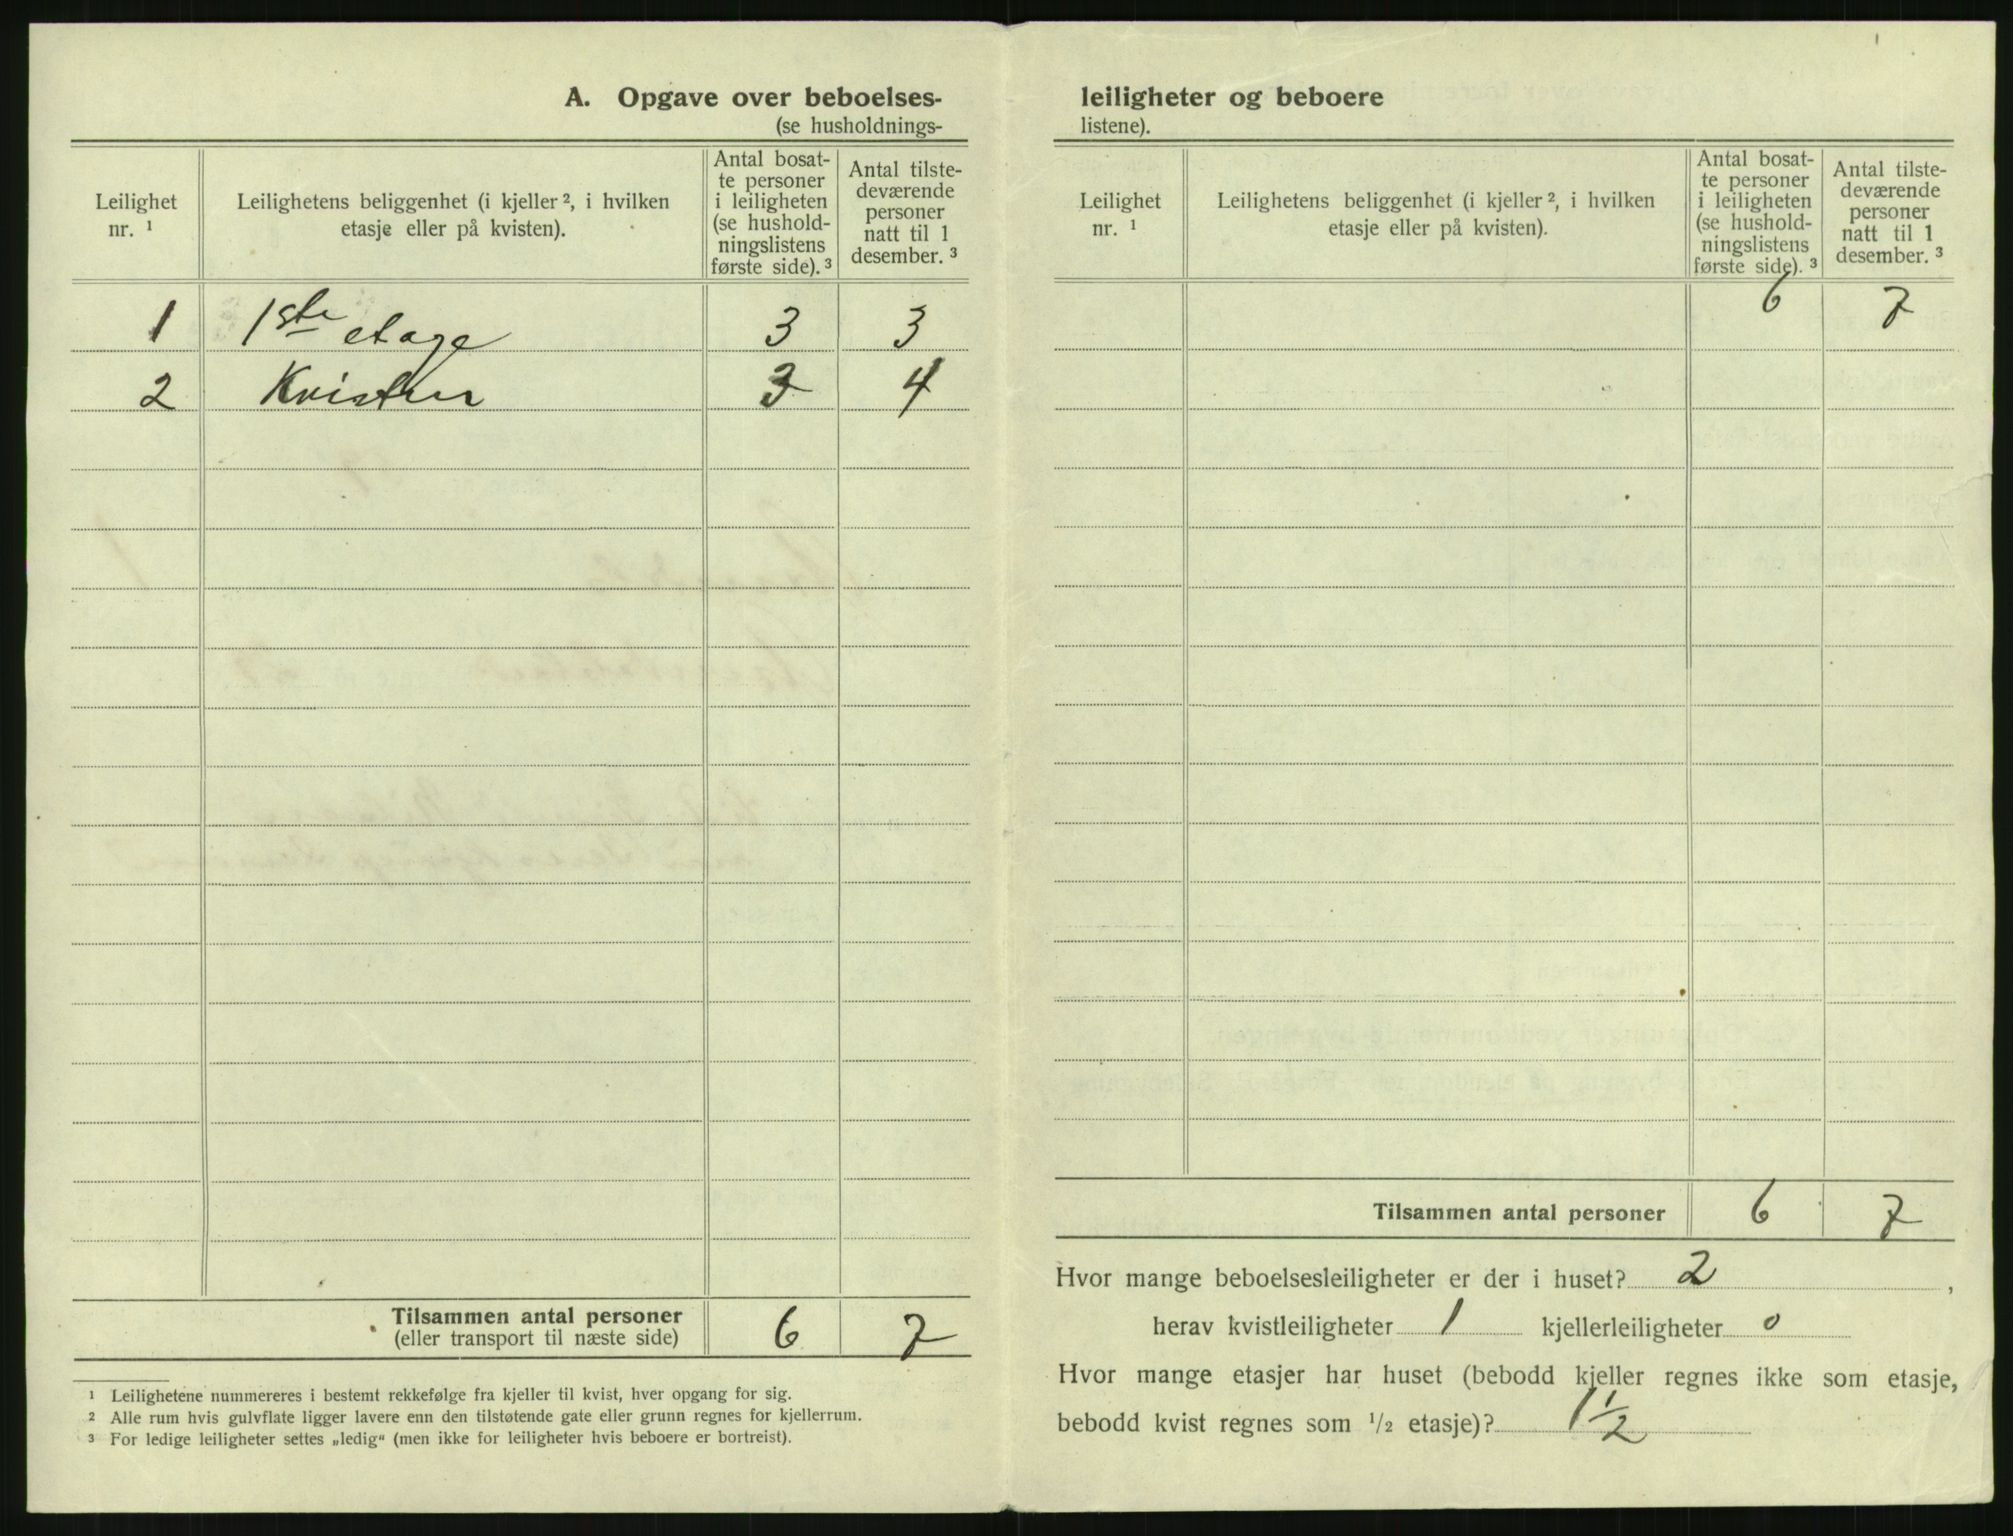 A. Opgave over beboelses-
(se husholdnings-
Leilighet nr. ¹
Leilighetens beliggenhet (i kjeller ², i hvilken
etasje eller på kvisten).
Antal bosat-
te personer
i leiligheten
(se hushold-
ningslistens
første side). ³
Antal tilste-
deværende
personer
natt til 1
desember. ³
1 1ste etage 3 3
2 Kvisten 3 4
Tilsammen antal personer 6 7
(eller transport til næste side)
¹ Leilighetene nummereres i bestemt rekkefølge fra kjeller til kvist, hver opgang for sig.
² Alle rum hvis gulvflate ligger lavere enn den tilstøtende gate eller grunn regnes for kjellerrum.
³ For ledige leiligheter settes „ledig“ (men ikke for leiligheter hvis beboere er bortreist).
leiligheter og beboere
listene).
Leilighet nr. ¹
Leilighetens beliggenhet (i kjeller ², i hvilken
etasje eller på kvisten).
Antal bosat-
te personer
i leiligheten
(se hushold-
ningslistens
første side). ³
Antal tilste-
deværende
personer
natt til 1
desember. ³
6 7
Tilsammen antal personer 6 7
Hvor mange beboelsesleiligheter er der i huset? 2 ,
herav kvistleiligheter 1 kjellerleiligheter 0
Hvor mange etasjer har huset (bebodd kjeller regnes ikke som etasje,
bebodd kvist regnes som ½ etasje)? 1 ½